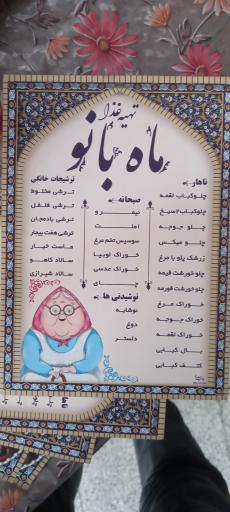 تهیه غذا
ماه بانو
ناهار
چلوکباب لقمه
چلوکباب ۲سیخ
چلو جوجه
چلو میکس
زرشک پلو با مرغ
چلو خورشت قیمه
چلو خورشت قورمه
خوراک مرغ
خوراک جوجه
خوراک لقمه
بال کبابی
کتف کبابی
صبحانه
نیمرو
املت
سوسیس تخم مرغ
خوراک لوبیا
خوراک عدسی
چای
نوشیدنی ها
نوشابه
دوغ
دلستر
ترشیجات خانگی
ترشی مخلوط
ترشی فلفل
ترشی بادمجان
ترشی هفت بیجار
ماست خیار
سالاد کاهو
سالاد شیرازی